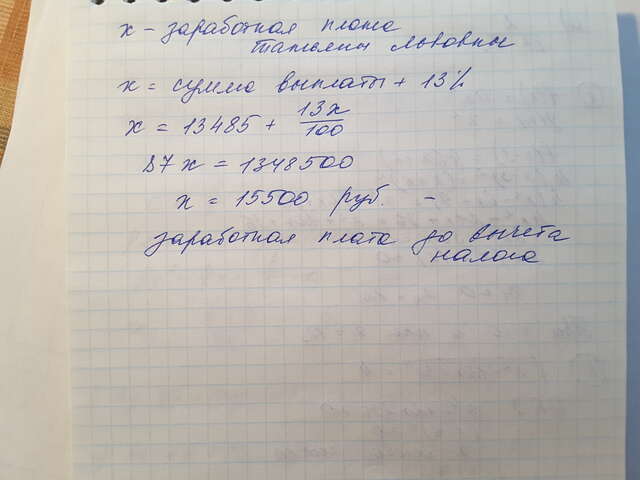 x - заработная плата
Татьяны Львовны
x = сумма выплаты + 13%
x = 13485 + 13x/100
87x = 1348500
x = 15500 руб. -
заработная плата до вычета
налога